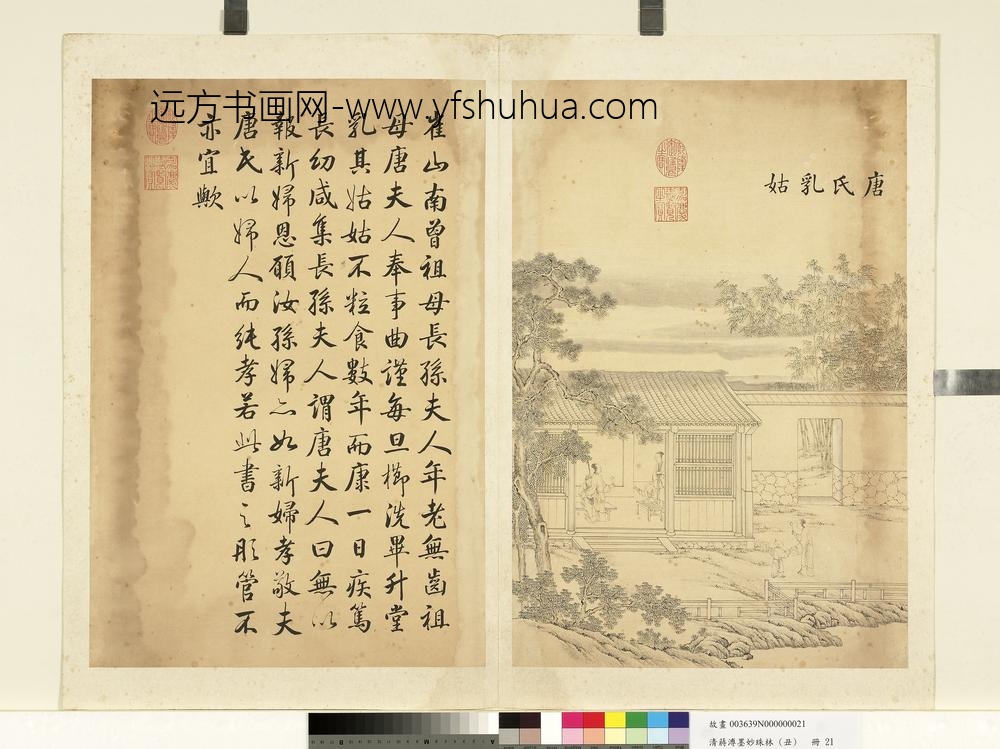 远方书画网-www.yfshuhua.com
唐氏乳姑
崔山南曾祖母長孫夫人年老無齒祖
母唐夫人奉事曲謹每旦櫛洗畢升堂
乳其姑姑不粒食數年而康一日疾篤
長幼咸集長孫夫人謂唐夫人曰無以
報新婦恩願汝孫婦亦如新婦孝敬夫
唐氏以婦人而純孝若此書之彤管不
亦宜歟
故畫 003639N000000021
清蔣溥墨妙珠林（丑） 冊 21